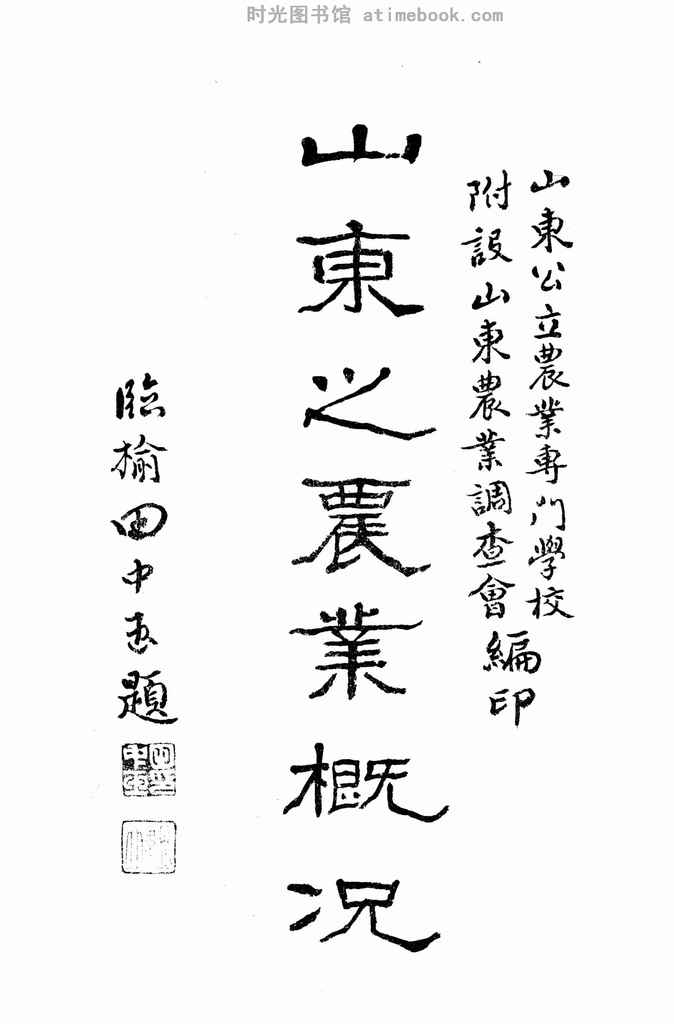 时光图书馆 atimebook.com
山東公立農業專門學校
附設山東農業調查會
編印
山東之農業概况
臨榆田中玉題